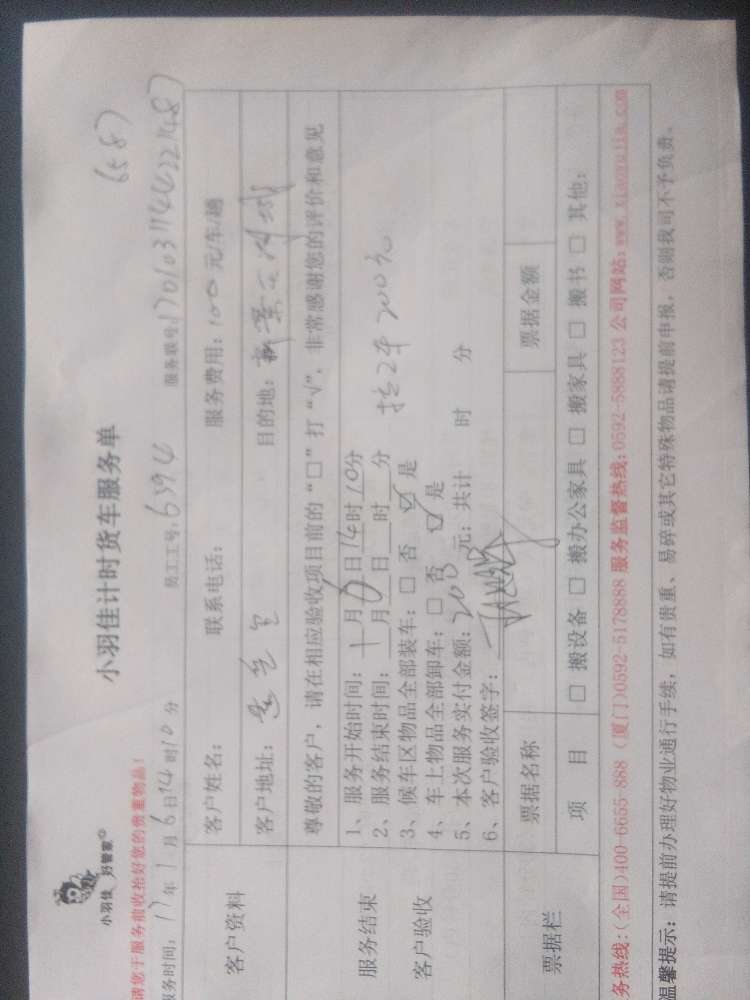 6587
小羽佳 好管家
小羽佳计时货车服务单
请您于服务前收拾好您的贵重物品!
服务时间: 17年1月6日14时10分 员工工号: 6394 服务联号: 17010311442214887
客户资料
客户姓名: 联系电话: 服务费用: 100元/车/趟
客户地址: 目的地:
服务结束
客户验收
尊敬的客户,请在相应验收项目前的“□”打“√”,非常感谢您的评价和意见
1、服务开始时间: 1月6日14时10分
2、服务结束时间: 月 日 时 分
3、候车区物品全部装车: □ 否 ☑ 是 2车200元
4、车上物品全部卸车: □ 否 ☑ 是
5、本次服务实付金额: 200元; 共计 时 分
6、客户验收签字:
票据栏
票据名称 票据金额
项 目 □ 搬设备 □ 搬办公家具 □ 搬家具 □ 搬书 □ 其他:
务热线:(全国)400-6655-888 (厦门)0592-5178888 服务监督热线:0592-5888123 公司网站:www.xiaoyujia.com
温馨提示: 请提前办理好物业通行手续,如有贵重、易碎或其它特殊物品请提前申报,否则我司不予负责。